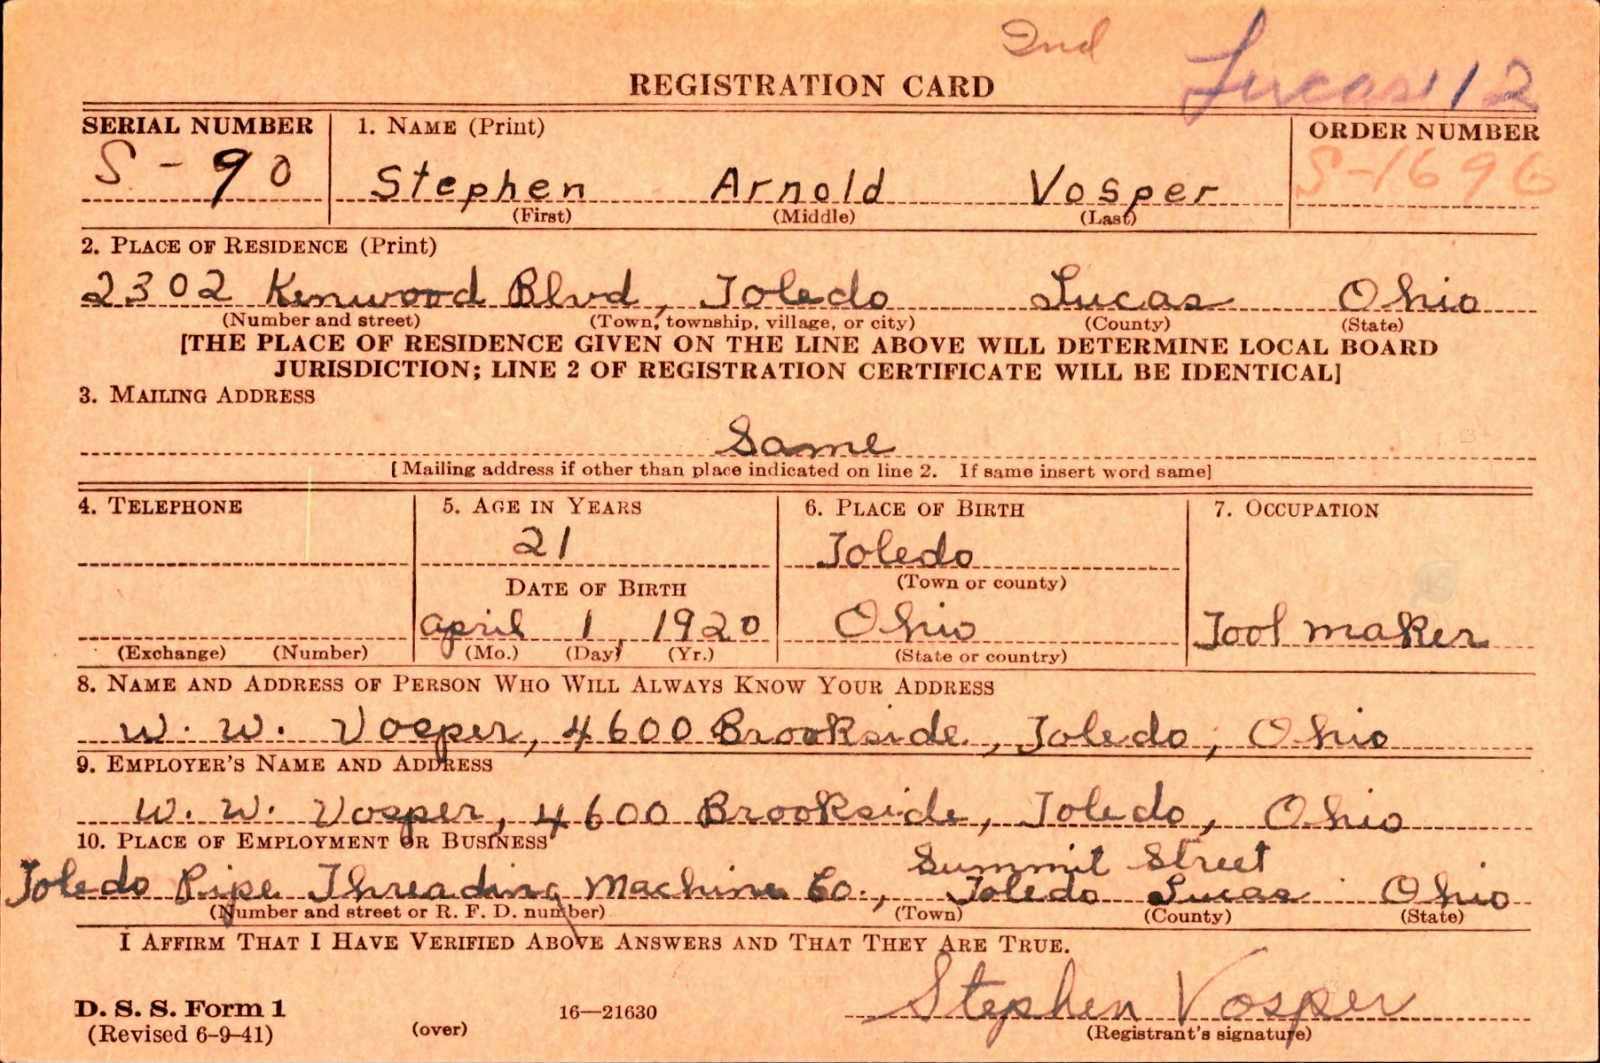 2nd Lucas 112
REGISTRATION CARD
SERIAL NUMBER 1. NAME (Print) ORDER NUMBER
S-90 Stephen Arnold Vosper S-1696
(First) (Middle) (Last)
2. PLACE OF RESIDENCE (Print)
2302 Kenwood Blvd, Toledo Lucas Ohio
(Number and street) (Town, township, village, or city) (County) (State)
[THE PLACE OF RESIDENCE GIVEN ON THE LINE ABOVE WILL DETERMINE LOCAL BOARD
JURISDICTION; LINE 2 OF REGISTRATION CERTIFICATE WILL BE IDENTICAL]
3. MAILING ADDRESS
Same
[Mailing address if other than place indicated on line 2. If same insert word same]
4. TELEPHONE 5. AGE IN YEARS 6. PLACE OF BIRTH 7. OCCUPATION
21 Toledo
DATE OF BIRTH (Town or county)
April 1, 1920 Ohio Tool maker
(Exchange) (Number) (Mo.) (Day) (Yr.) (State or country)
8. NAME AND ADDRESS OF PERSON WHO WILL ALWAYS KNOW YOUR ADDRESS
W. W. Vosper, 4600 Brookside, Toledo, Ohio
9. EMPLOYER'S NAME AND ADDRESS
W. W. Vosper, 4600 Brookside, Toledo, Ohio
10. PLACE OF EMPLOYMENT OR BUSINESS
Summit Street
Toledo Pipe Threading Machine Co., Toledo Lucas Ohio
(Number and street or R. F. D. number) (Town) (County) (State)
I AFFIRM THAT I HAVE VERIFIED ABOVE ANSWERS AND THAT THEY ARE TRUE.
Stephen Vosper
D. S. S. Form 1
(Revised 6-9-41) (over) 16—21630 (Registrant's signature)